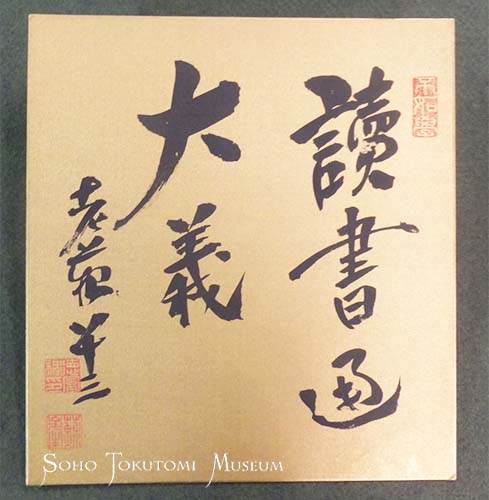 讀書通
大義
老蘇
SOHO TOKUTOMI MUSEUM